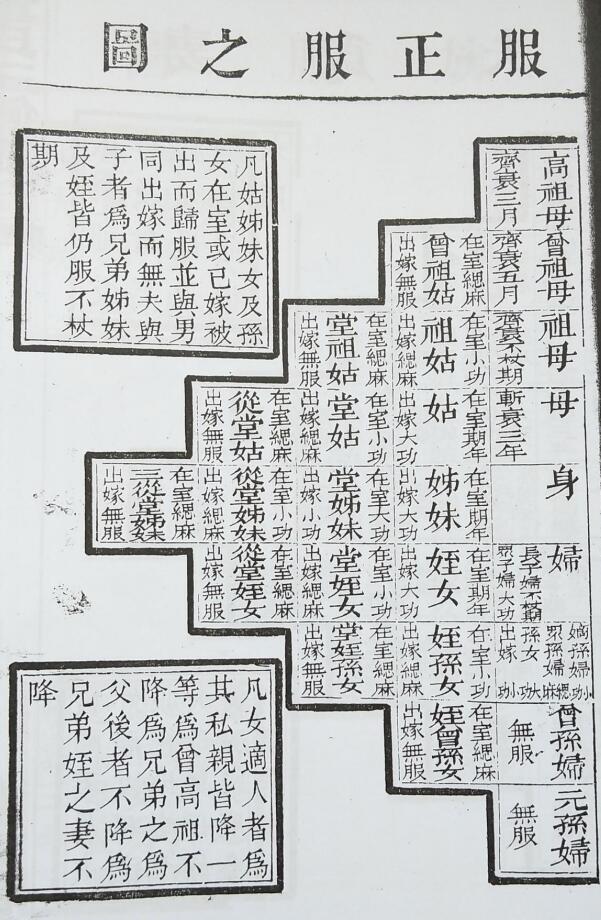 服正服之圖
高祖母
齊衰三月
曾祖母
齊衰五月
祖母
齊衰不杖期
母
斬衰三年
身
婦
長子婦不杖期
眾子婦大功
嫡孫婦小功
眾孫婦緦麻
孫女大功
出嫁小功
曾孫婦
無服
元孫婦
無服
在室緦麻
曾祖姑
出嫁無服
在室小功
祖姑
出嫁緦麻
在室期年
姑
出嫁大功
在室期年
姊妹
出嫁大功
在室期年
姪女
出嫁大功
在室小功
姪孫女
出嫁緦麻
在室緦麻
姪曾孫女
出嫁無服
在室緦麻
堂祖姑
出嫁無服
在室小功
堂姑
出嫁緦麻
在室大功
堂姊妹
出嫁小功
在室小功
堂姪女
出嫁緦麻
在室緦麻
堂姪孫女
出嫁無服
在室緦麻
從堂姑
出嫁無服
在室小功
從堂姊妹
出嫁緦麻
在室緦麻
從堂姪女
出嫁無服
在室緦麻
三從堂姊妹
出嫁無服
凡姑姊妹女及孫
女在室或已嫁被
出而歸服並與男
同出嫁而無夫與
子者爲兄弟姊妹
及姪皆仍服不杖
期
凡女適人者爲
其私親皆降一
等爲曾高祖不
降爲兄弟之爲
父後者不降爲
兄弟姪之妻不
降